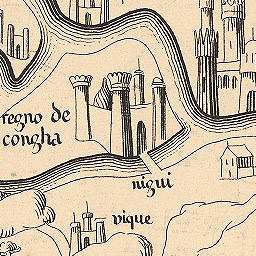 regno de
congha
nigui
vique